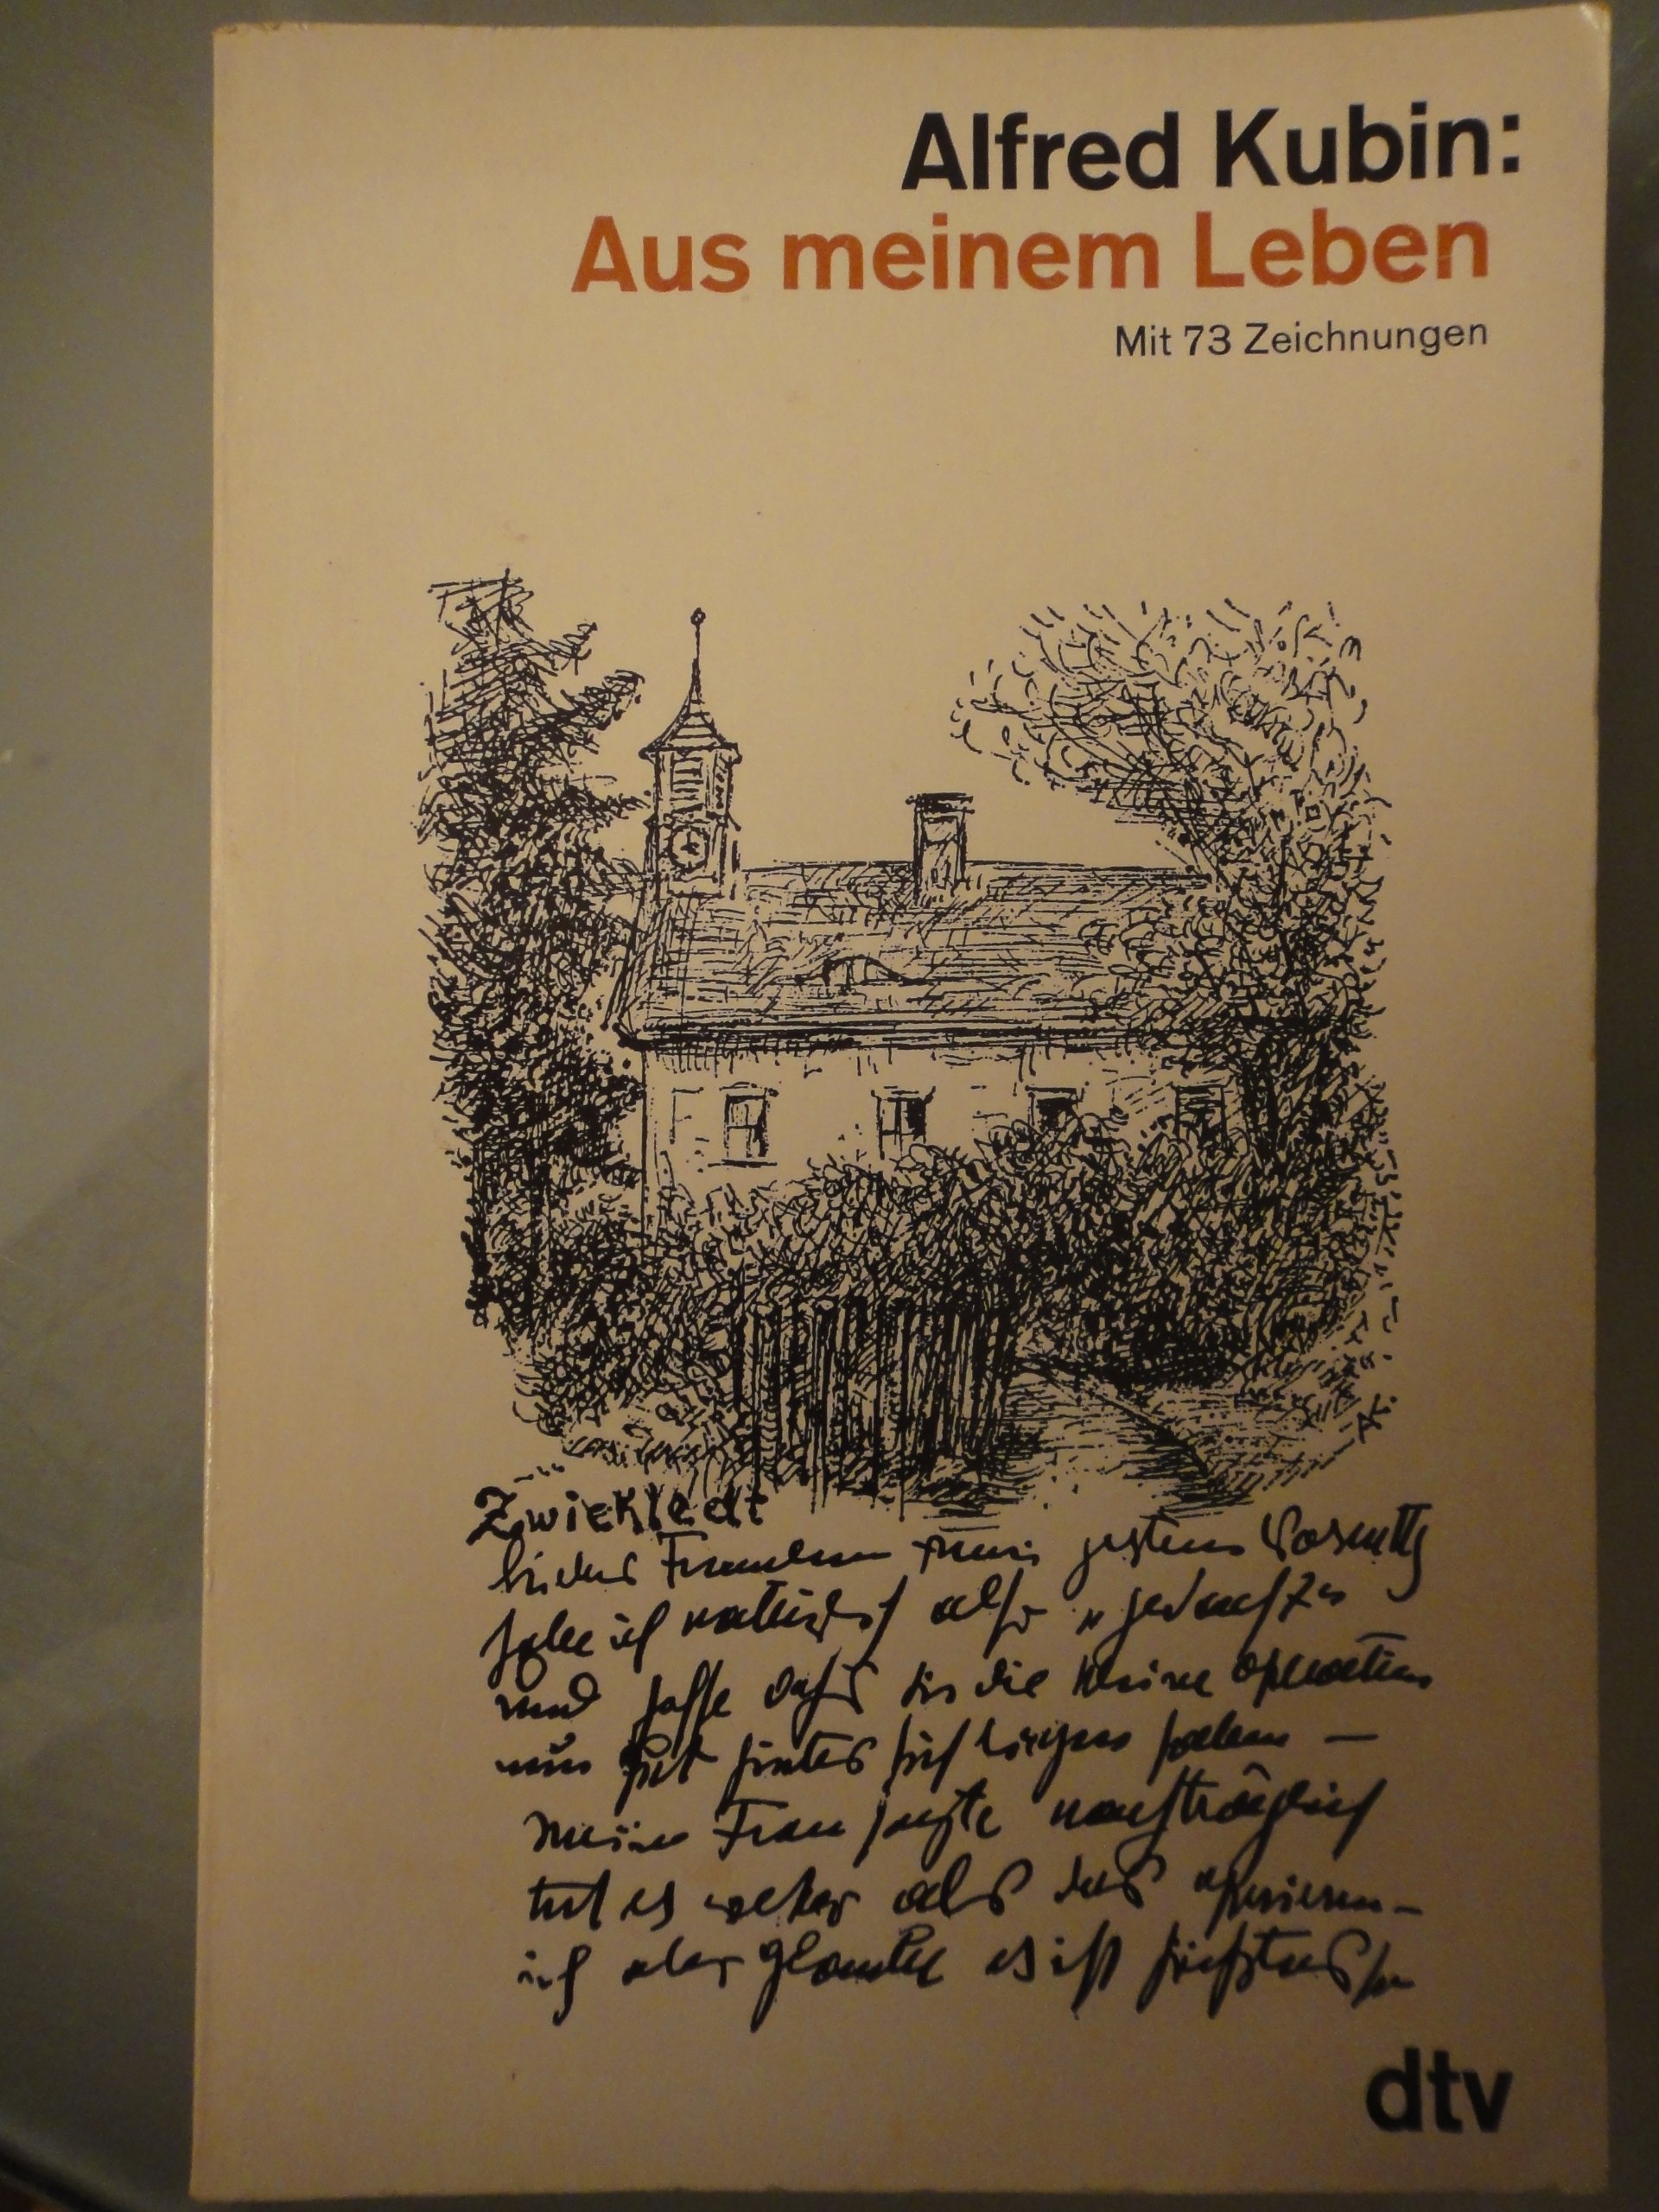 Alfred Kubin:
Aus meinem Leben
Mit 73 Zeichnungen
Zwickledt
habe ich natürlich also „
und hoffe daß die kleine Operation
nun gut hinter sich haben —
meine Frau sagte nachträglich
tut es weher als das operieren —
ich aber glaube es ist
dtv